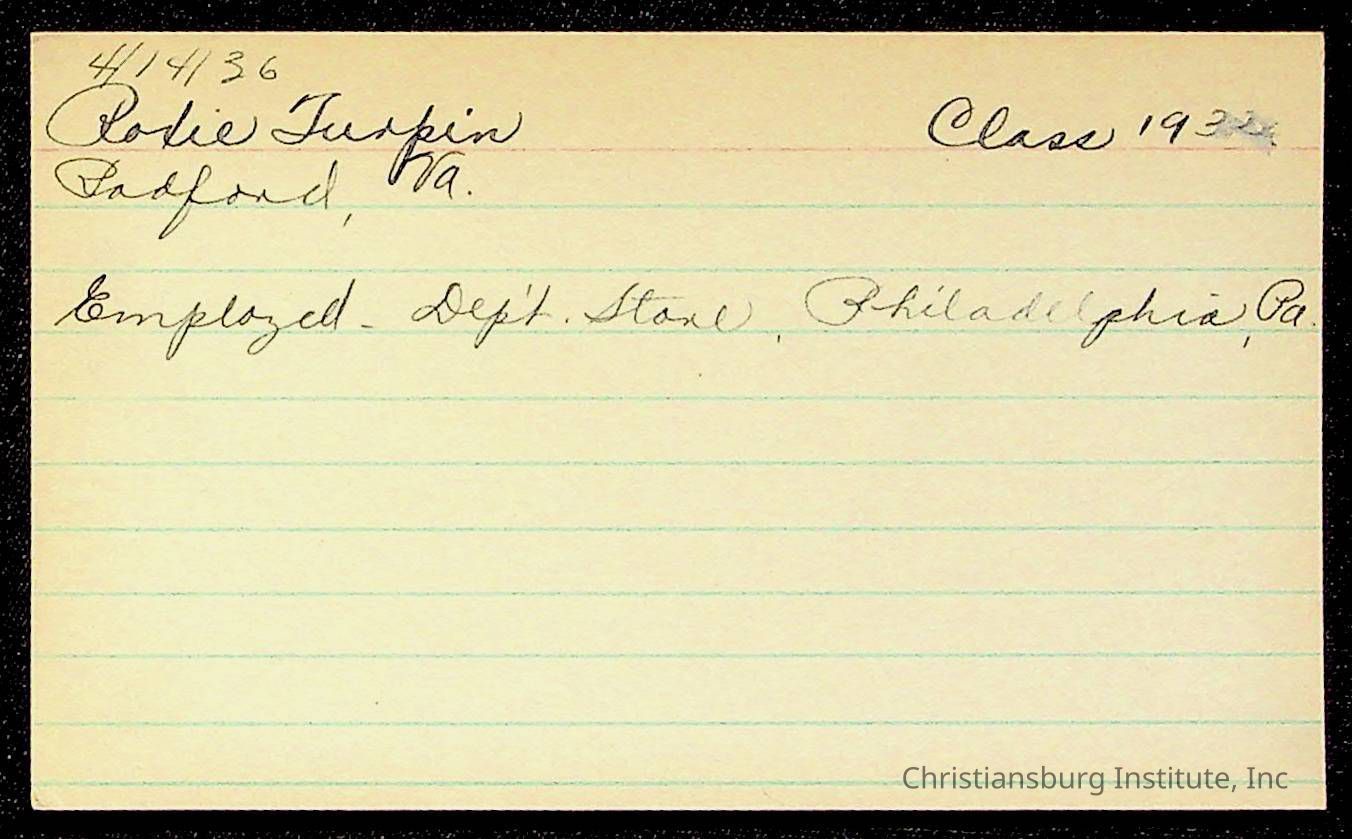 4/14/36
Rodie Turpin Class 193
Radford, Va.
Employed - Dep't. Store, Philadelphia, Pa.
Christiansburg Institute, Inc